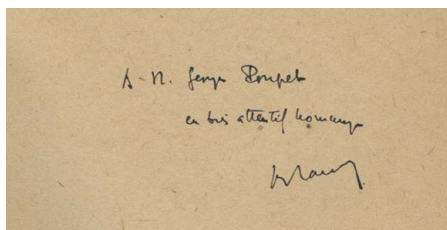 A M. Georges Poupet
en très attentif hommage